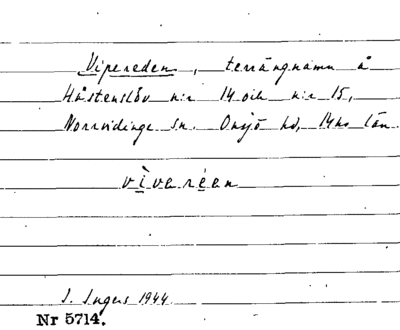 Vipereden, terrängnamn å
Håstenslöv n:r 14 och n:r 15,
Norrvidinge sn. Onsjö hd, M:hs län.
vìvaréen
I. Ingers 1944.
Nr 5714.